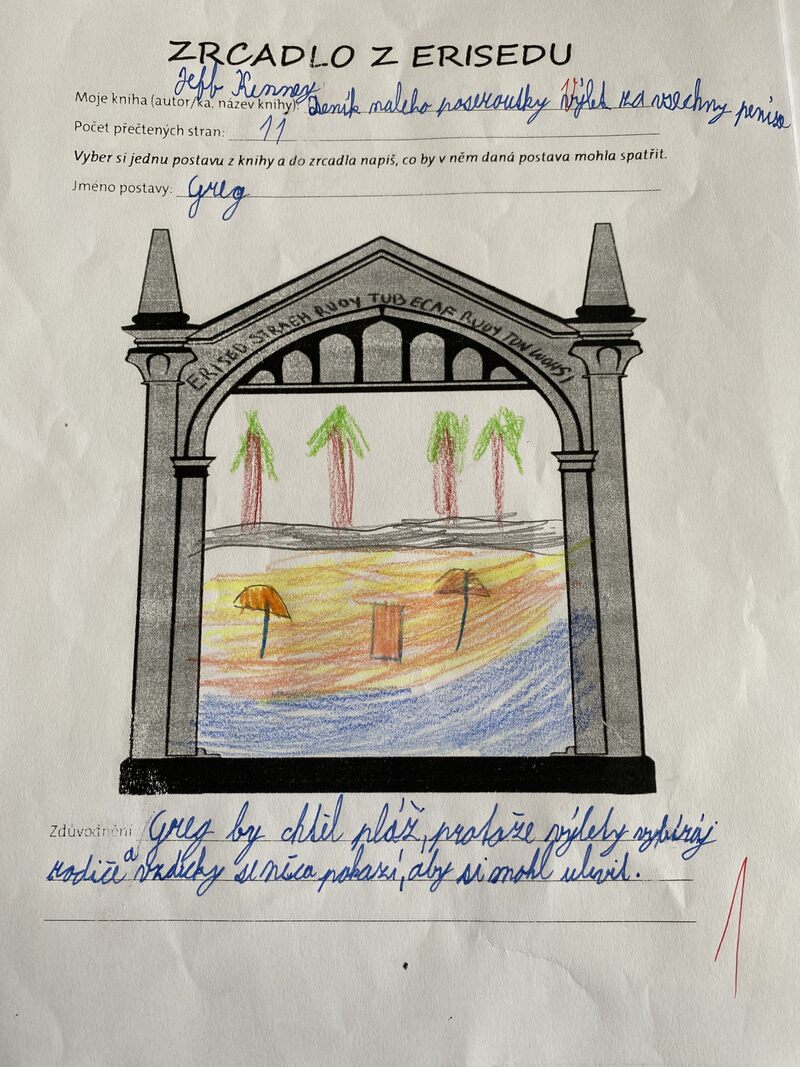 ZRCADLO Z ERISEDU
Jeff Kinney
Moje kniha (autor/ka, název knihy): Deník maleho poseroutky Výlet za vsechny peníze
Počet přečtených stran: 11
Vyber si jednu postavu z knihy a do zrcadla napiš, co by v něm daná postava mohla spatřit.
Jméno postavy: Greg
ERISED STRAEH RUOY TUB ECAF RUOY TON WOHSI
Zdůvodnění Greg by chtěl pláž, protože výlety vybíráj
rodiče a vzdicky se něco pokazí, aby si mohl ulevit.
1